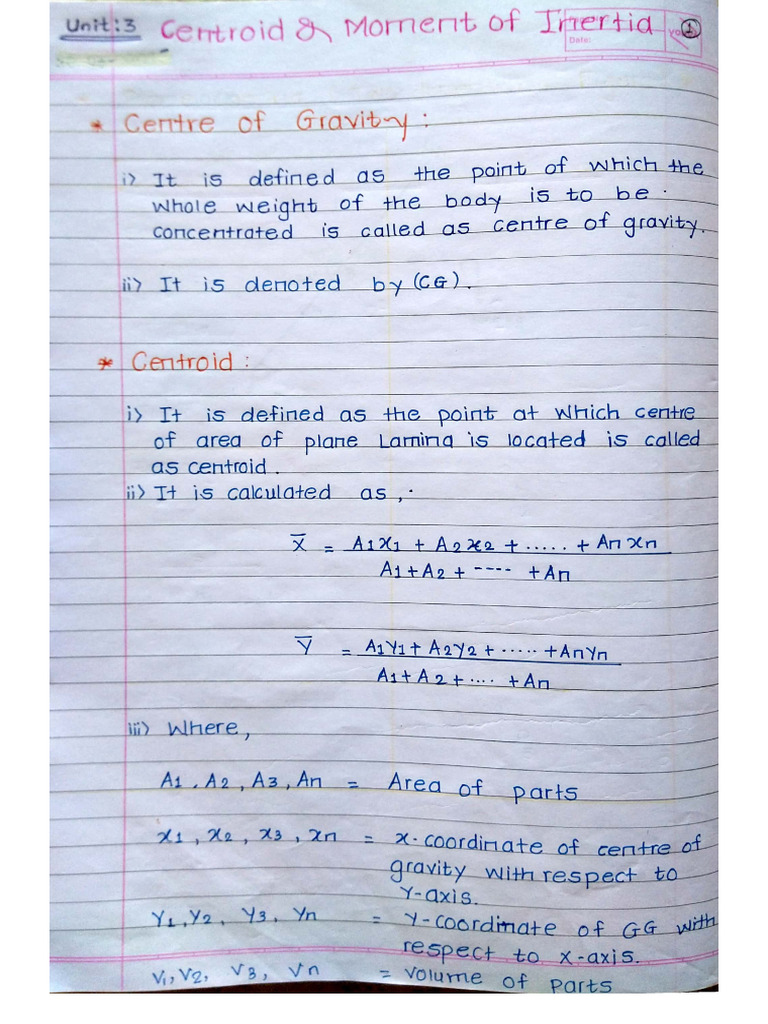 Unit:3 Centroid & Moment of Inertia ①
Date:
* Centre of Gravity :
i) It is defined as the point of which the
whole weight of the body is to be.
concentrated is called as centre of gravity.
ii) It is denoted by (CG).
* Centroid :
i) It is defined as the point at which centre
of area of plane Lamina is located is called
as centroid.
ii) It is calculated as,.
x̅ = A1x1 + A2x2 + ..... + An xn
A1+A2 + ---- +An
Y̅ = A1Y1+ A2Y2 + ..... +AnYn
A1+A2+.... +An
iii) Where,
A1, A2, A3, An = Area of parts
x1, x2, x3, xn = x-coordinate of centre of
gravity with respect to
Y-axis.
Y1,Y2, Y3, Yn = Y-coordinate of GG with
respect to x-axis.
V1,V2, V3, Vn = Volume of parts